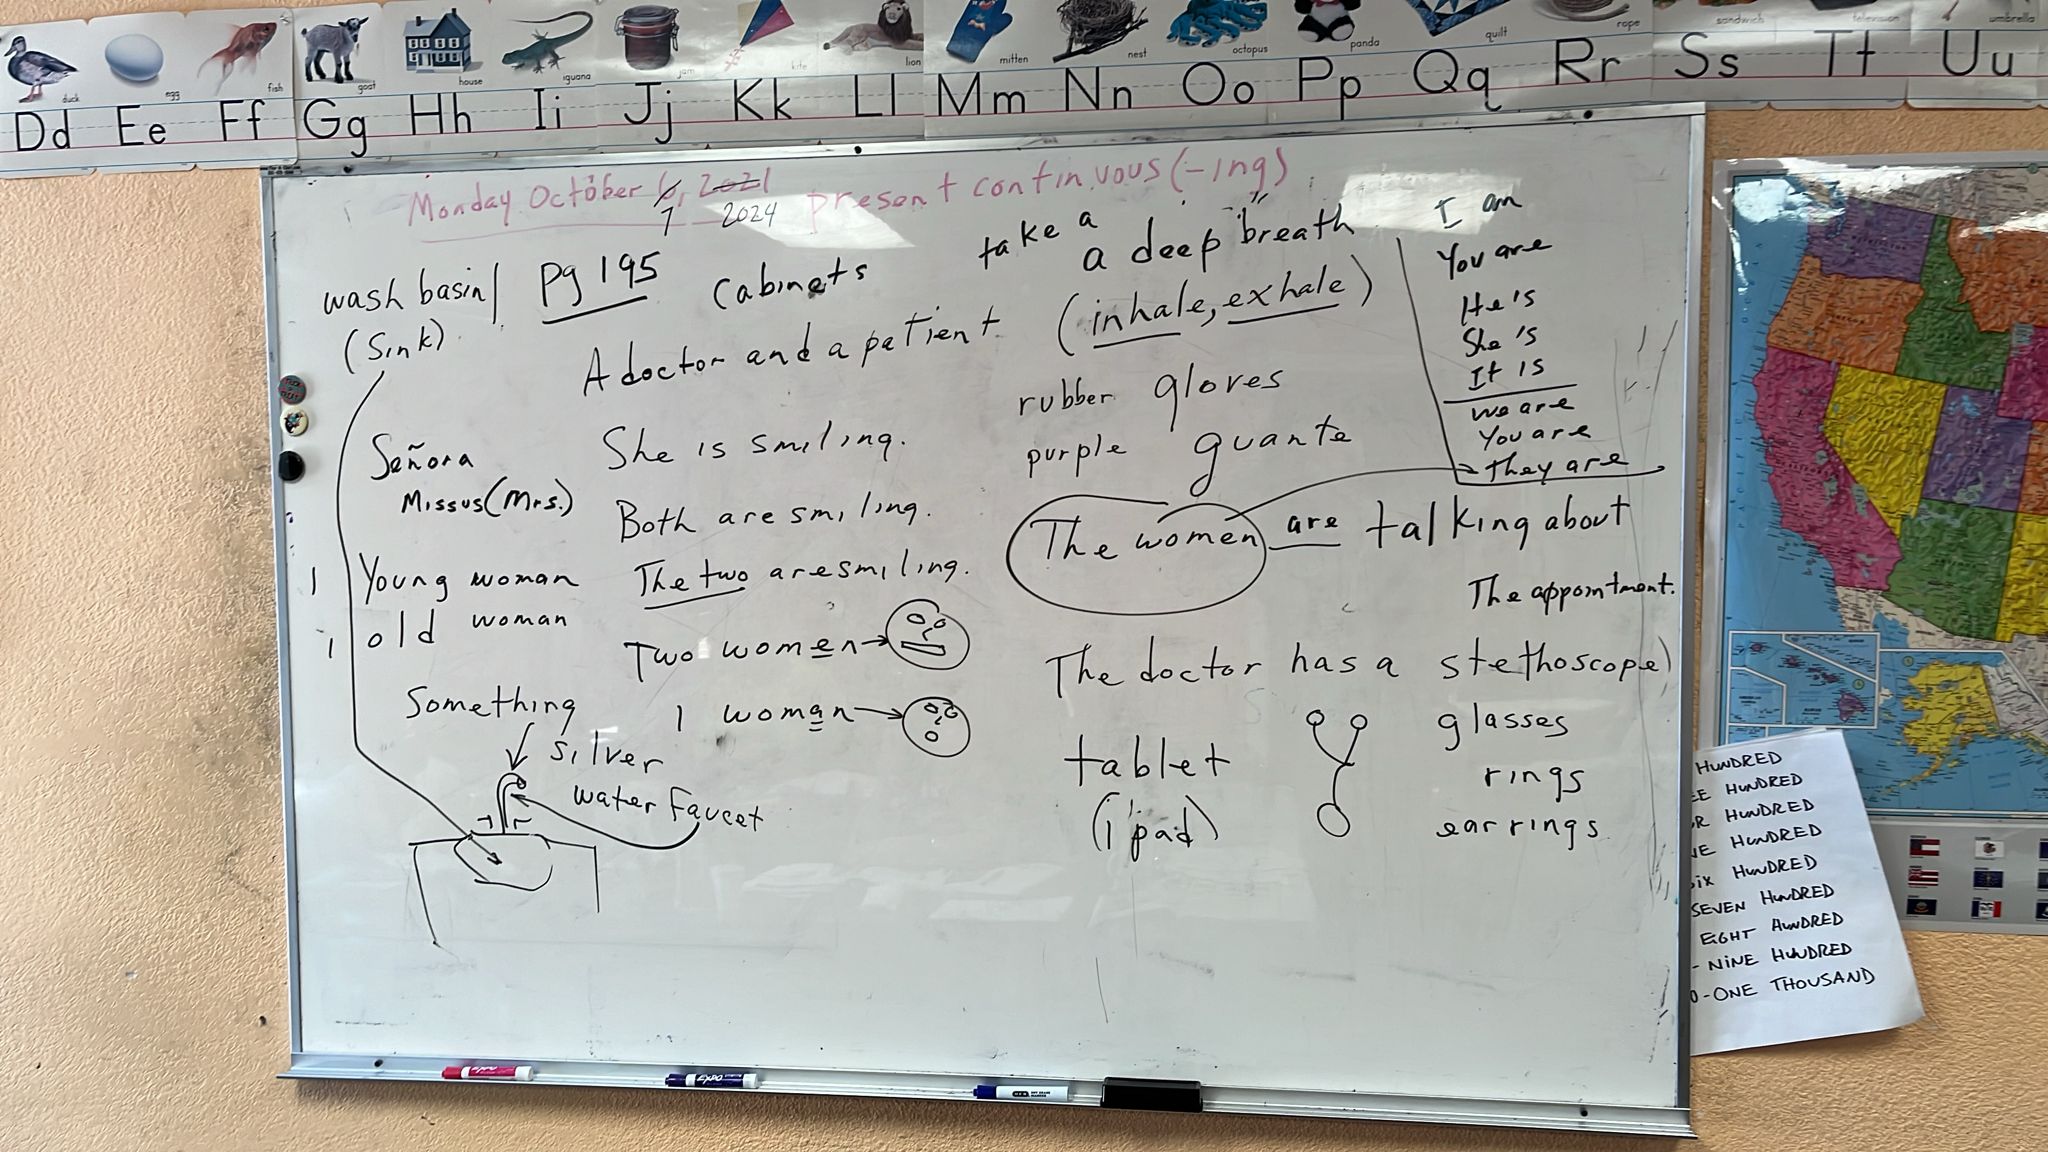 duck
egg
fish
goat
house
iguana
jam
kite
lion
mitten
nest
octopus
panda
quilt
rope
sandwich
television
umbrella
Dd Ee Ff Gg Hh Ii Jj Kk Ll Mm Nn Oo Pp Qq Rr Ss Tt Uu
Monday October 6, 2021 present continuous (-ing)
7 2024
wash basin/
(Sink)
pg 195
cabinets
take a
a deep breath
(inhale, exhale)
A doctor and a patient
rubber gloves
purple guante
I am
You are
He's
She's
It is
we are
You are
they are
Señora
Missus (Mrs.)
She is smiling.
Both are smiling.
The two are smiling.
1 Young woman
1 old woman
Two women
1 woman
The women are talking about
The appointment.
The doctor has a stethoscope)
glasses
rings
earrings
tablet
(i pad)
Something
silver
water faucet
HUNDRED
EE HUNDRED
R HUNDRED
VE HUNDRED
SIX HUNDRED
SEVEN HUNDRED
EIGHT HUNDRED
- NINE HUNDRED
0 - ONE THOUSAND
EXPO
EXPO